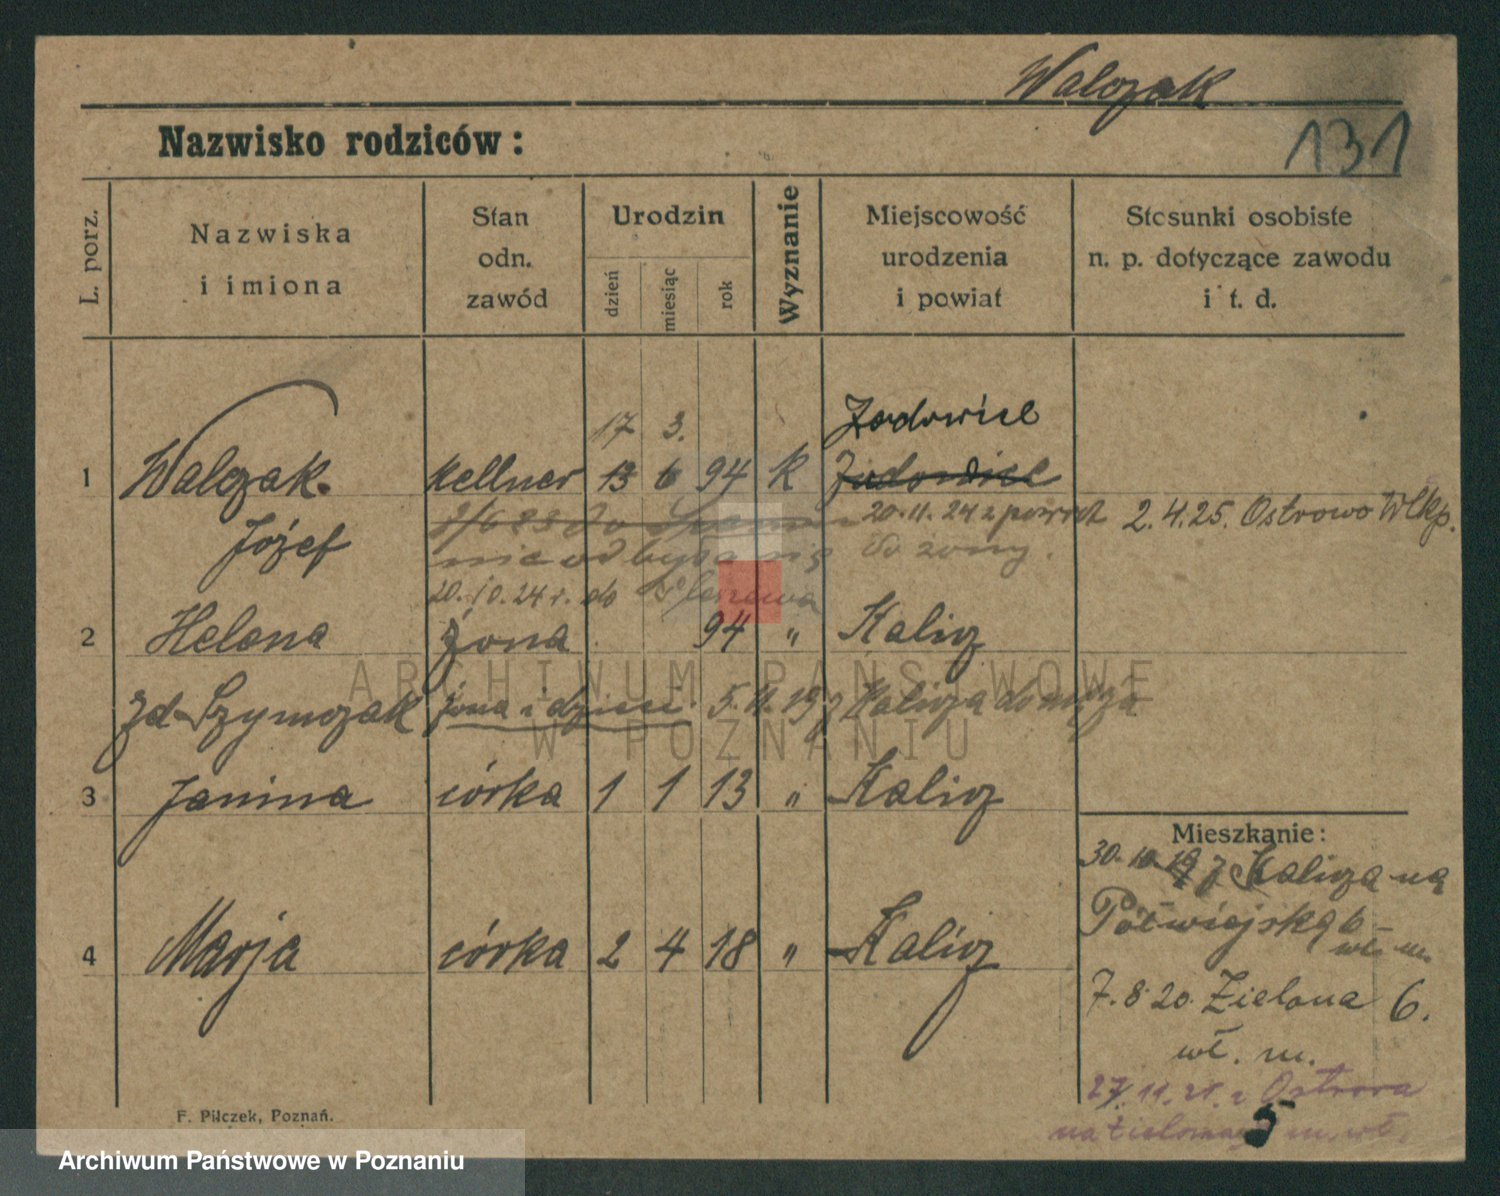 Walczak
131
Nazwisko rodziców:
L. porz.
Nazwiska
i imiona
Stan
odn.
zawód
Urodzin
dzień
miesiąc
rok
Wyznanie
Miejscowość
urodzenia
i powiat
Stosunki osobiste
n. p. dotyczące zawodu
i t. d.
17 3.
1 Walczak. kellner 13 6 94 K
Józef
20.11.24 z powrot
do żony.
nie odbyła się
2.4.25. Ostrowo Wlkp.
20.10.24 r. do
2 Helena żona 94 " Kalisz
zd. Szymczak żona i dzieci 5.11.19 z Kalisza do męża
3 Janina córka 1 1 13 " Kalisz
4 Marja córka 2 4 18 " Kalisz
Mieszkanie:
30.10.19 z Kalisza na
Półwiejską 6
wł. m.
7.8.20. Zielona 6.
wł. m.
27.11.21. z Ostrowa
na Zieloną 5 m. wł.
F. Pilczek, Poznań.
ARCHIWUM PAŃSTWOWE
W POZNANIU
Archiwum Państwowe w Poznaniu